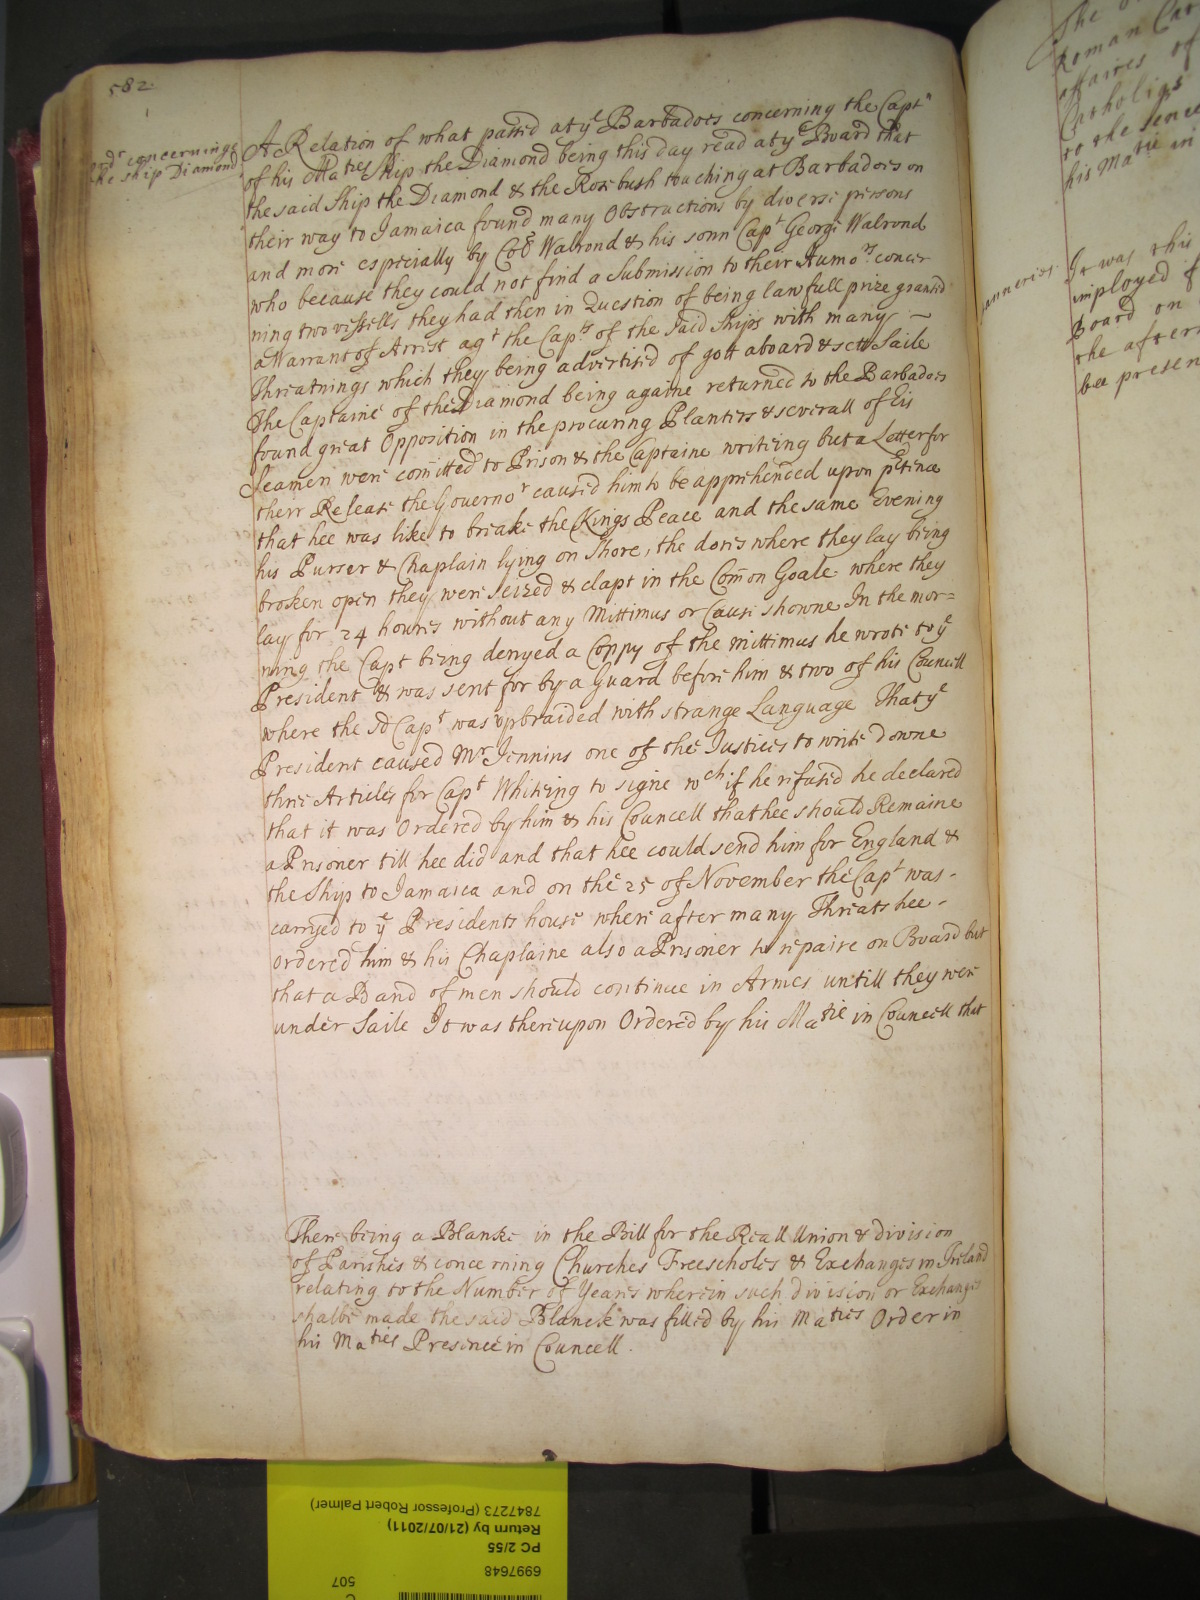 582.
Ord.r concerning
the ship Diamond
A Relation of what passed at ye Barbadoes concerning the Captn
of his Ma:ties Ship the Diamond being this day read at ye Board that
the said Ship the Diamond & the Rosebush touching at Barbadoes on
their way to Jamaica found many Obstructions by diverse persons
and more especially by Coll Walrond & his sonn Capt George Walrond
who because they could not find a Submission to their Humors concer
ning two vessells they had then in Question of being lawfull prize granted
a Warrant of Arrest agt the Capts of the said Ships with many
Threatnings which they being advertised of gott aboard & sett Saile
The Captaine of the Diamond being againe returned to the Barbadoes
found great Opposition in the procuring Planters & severall of his
Seamen were comitted to Prison & the Captaine writeing but a Letter for
their Release the Governor caused him to be apprehended upon ptence
that hee was like to breake the Kings Peace and the same Evening
his Purser & Chaplain lying on Shore, the dores where they lay being
broken open they were seized & clapt in the Comon Goale where they
lay for 24 houres without any Mittimus or Cause showne In the mor=
ning the Capt being denyed a Coppy of the mittimus he wrote to ye
President & was sent for by a Guard before him & two of his Councell
where the sd Capt was upbraided with strange Language That ye
President caused Mr Jennins one of the Justices to write downe
three Articles for Capt Whiteing to signe wch if he refused he declared
that it was Ordered by him & his Councell that hee should Remaine
a Prisoner till hee did and that hee could send him for England &
the Ship to Jamaica and on the 25 of November the Capt was-
carryed to ye Presidents house where after many Threats hee-
ordered him & his Chaplaine also a Prisoner to repaire on Board but
that a Band of men should continue in Armes untill they were
under Saile It was thereupon Ordered by his Matie in Councell that
There being a Blanke in the Bill for the Reall Union & division
of Parishes & concerning Churches Freescholes & Exchanges in Ireland
relating to the Number of Yeares wherein such division or Exchanges
shalbe made the said Blanck was filled by his Maties Order in
his Maties Presence in Councell.
Roman Cat
affaires of
Catholigs
to the
his Matie in
It was this
imployed
Board on
the after
bee presen
7847273 (Professor Robert Palmer)
Return by (21/07/2011)
PC 2/55
6997648
507